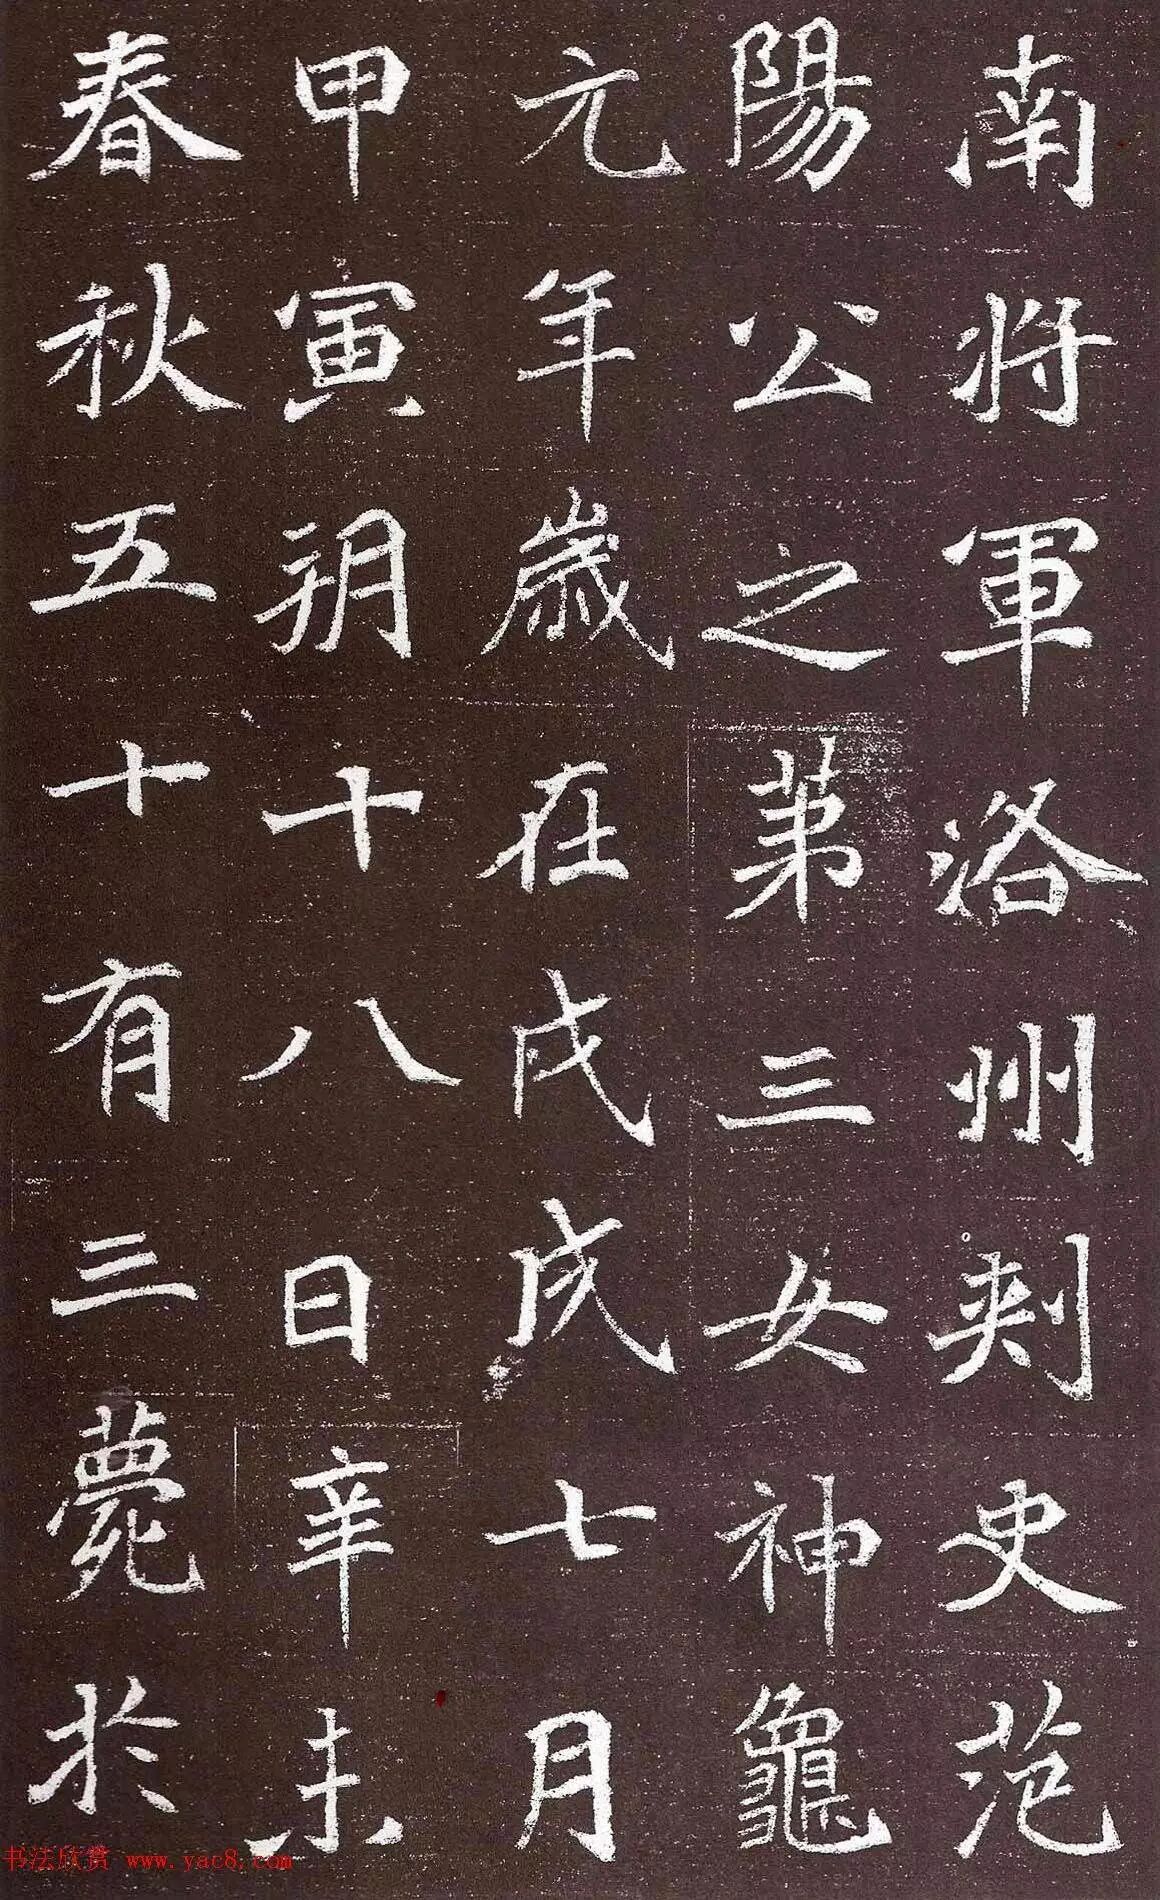 南將軍洛州刾史范
陽公之苐三女神龜
元年歲在戌戌七月
甲寅朔十八日辛未
春秋五十有三薨於
书法欣赏 www.yac8.com